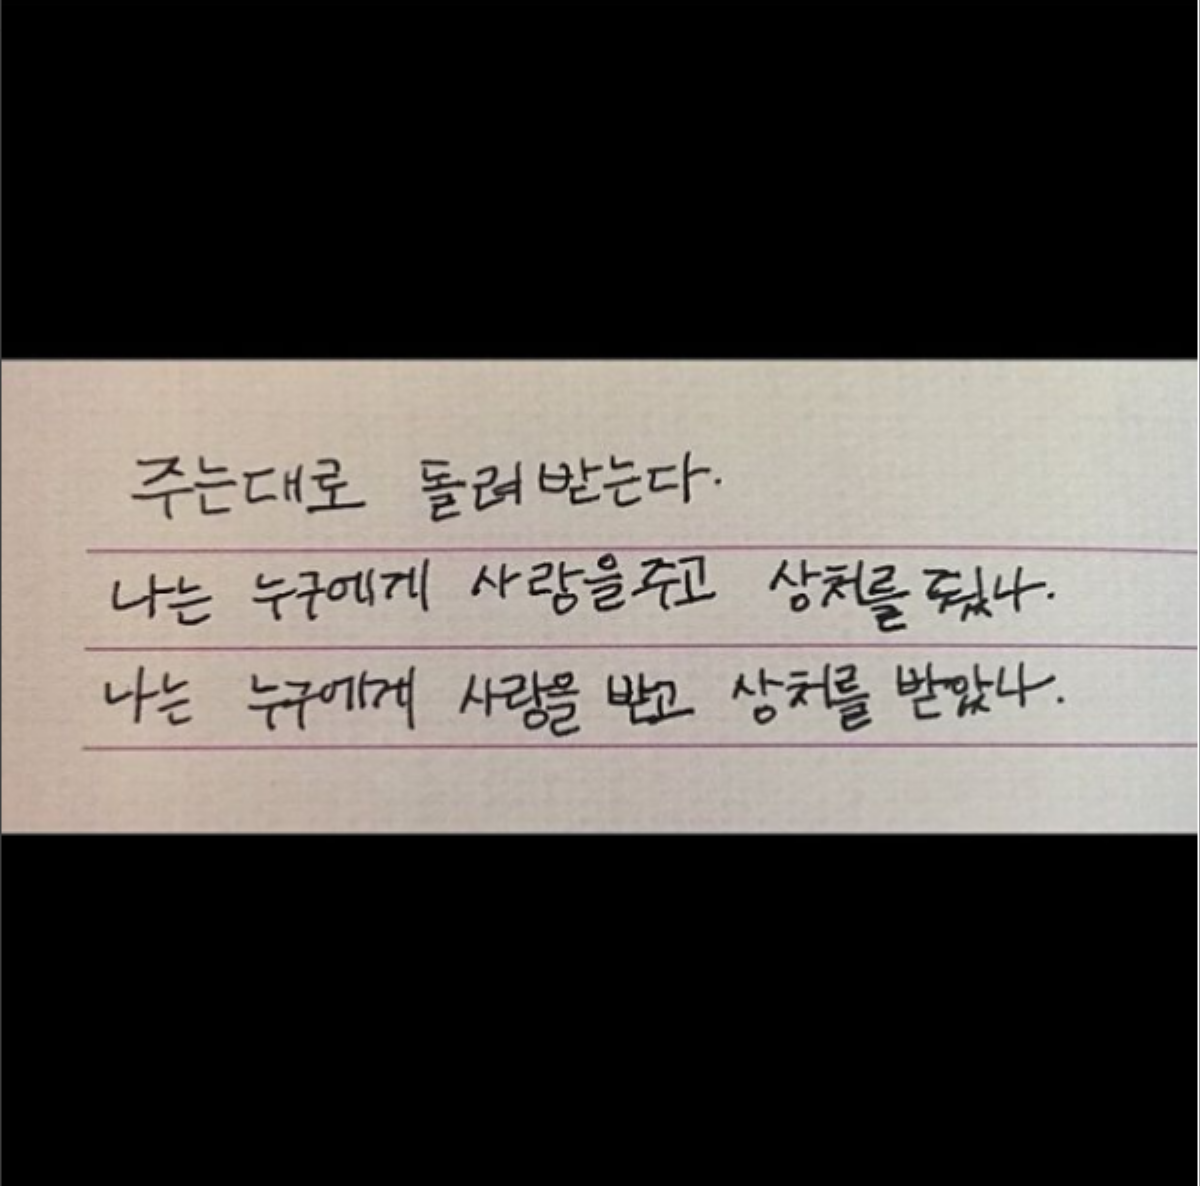 주는대로 돌려 받는다.
나는 누구에게 사랑을 주고 상처를 줬나.
나는 누구에게 사랑을 받고 상처를 받았나.